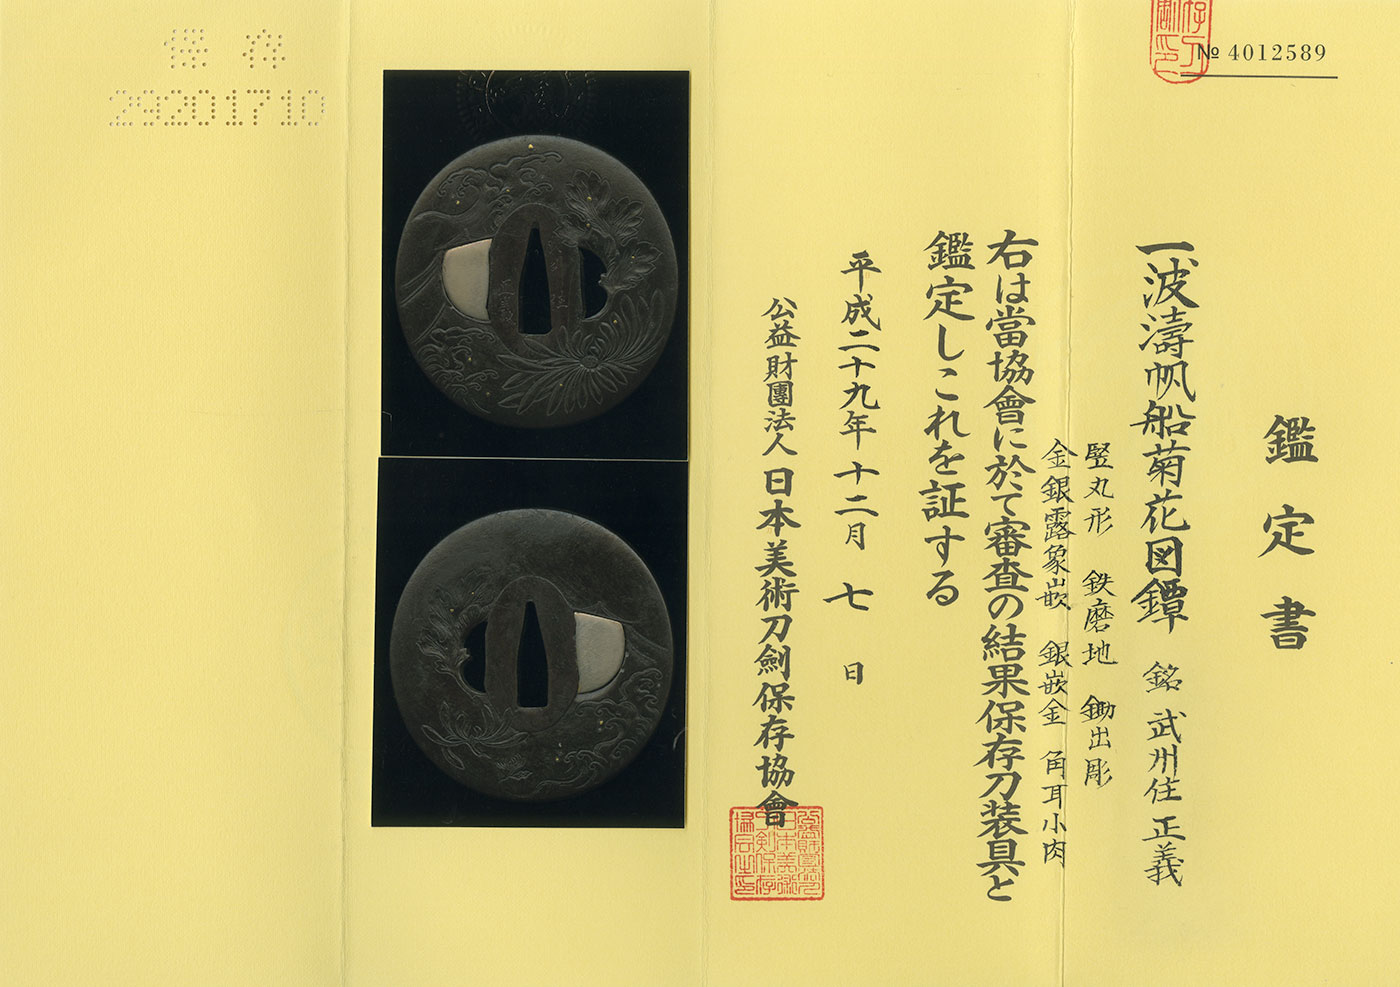 № 4012589
鑑定書
一、波濤帆船菊花図鐔 銘 武州住正義
竪丸形 鉄磨地 鋤出彫
金銀露象嵌 銀嵌金 角耳小肉
右は當協會に於て審査の結果保存刀装具と
鑑定しこれを証する
平成二十九年十二月七日
公益財團法人 日本美術刀劍保存協會
保存
29201710